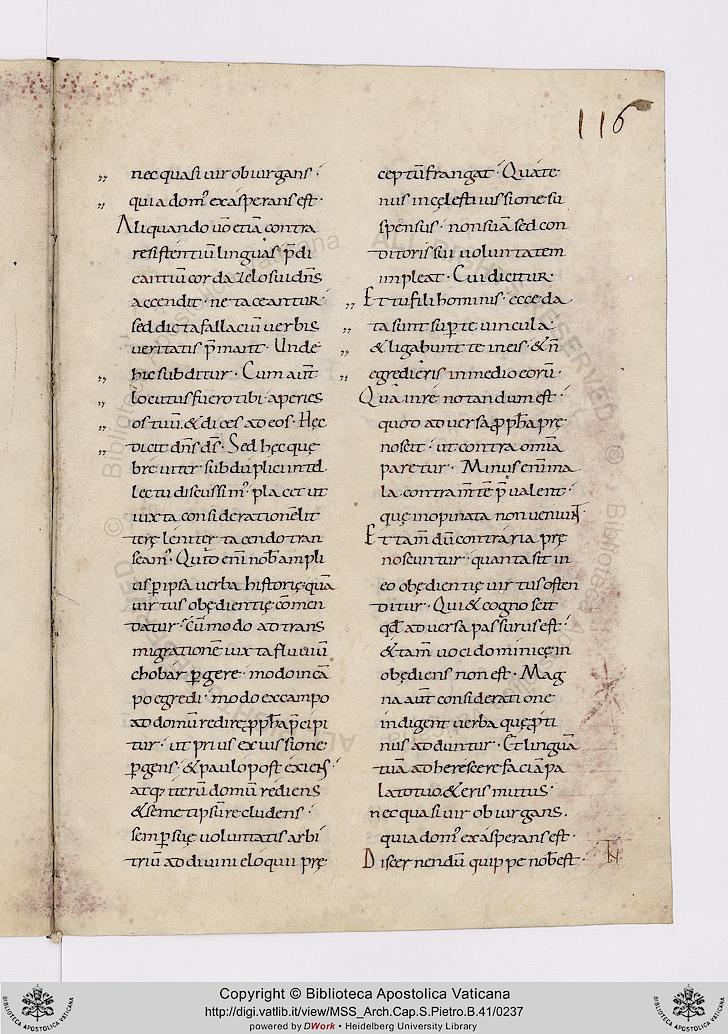 116
nec quasi uir obiurgans ·
quia dom' exasperans est ·
Aliquando uo etiā contra
resistentiū linguas p̄di
cantiū corda zelo sui dn̄s
accendit · ne taceantur ·
sed dicta fallaciū uerbis
ueritatis p̄mant · Unde
hic subditur · Cum aūt
locutus fuero tibi · aperies
os tuū · & dices ad eos · Hęc
dicit dn̄s d̄s · Sed hęc quę
breuiter sub duplici intel
lectu discussim' · placet ut
iuxta considerationē lit
terę leniter tacendo tran
seam' · Quid eni nob ampli
us p ipsa uerba historię quā
uirtus obędientię cōmen
datur · Cū modo ad trans
migrationē iuxta fluuiū
chobar pgere · modo in cā
po egredi · modo ex campo
ad domū redire ppha p̄cipi
tur · ut prius ex iussione
pgens · & paulo post exiens ·
atq; iterū domū rediens
& semetipsū recludens ·
semp suę uoluntatis arbi
triū ad diuini eloquii prę
ceptū frangat · Quate
nus in cęlesti iussione su
spensus · non suā sed con
ditoris sui uoluntatem
impleat · Cui dicitur ·
Et tu fili hominis · ecce da
ta sunt sup te uincula ·
& ligabunt te in eis · & n̄
egredieris in medio eorū ·
Qua in re notandum est ·
quod aduersa ppha prę
noscit · ut contra omīa
paretur · Minus enim ma
la contra m̄te p̄ualent ·
quę inopinata non ueniunt
Et tam dū contraria prę
noscuntur · quanta sit in
eo obędientię uirtus osten
ditur · Qui & cognoscit
qd aduersa passurus est ·
& tam uoci dominicę in
obędiens non est · Mag
na aūt consideratione
indigent uerba quę p̄ti
nus adduntur · Et linguā
tuā adherescere faciā pa
lato tuo · & eris mutus ·
nec quasi uir obiurgans ·
quia dom' exasperans est ·
Discernendū quippe nob est ·
Copyright © Biblioteca Apostolica Vaticana
http://digi.vatlib.it/view/MSS_Arch.Cap.S.Pietro.B.41/0237
powered by DWork • Heidelberg University Library